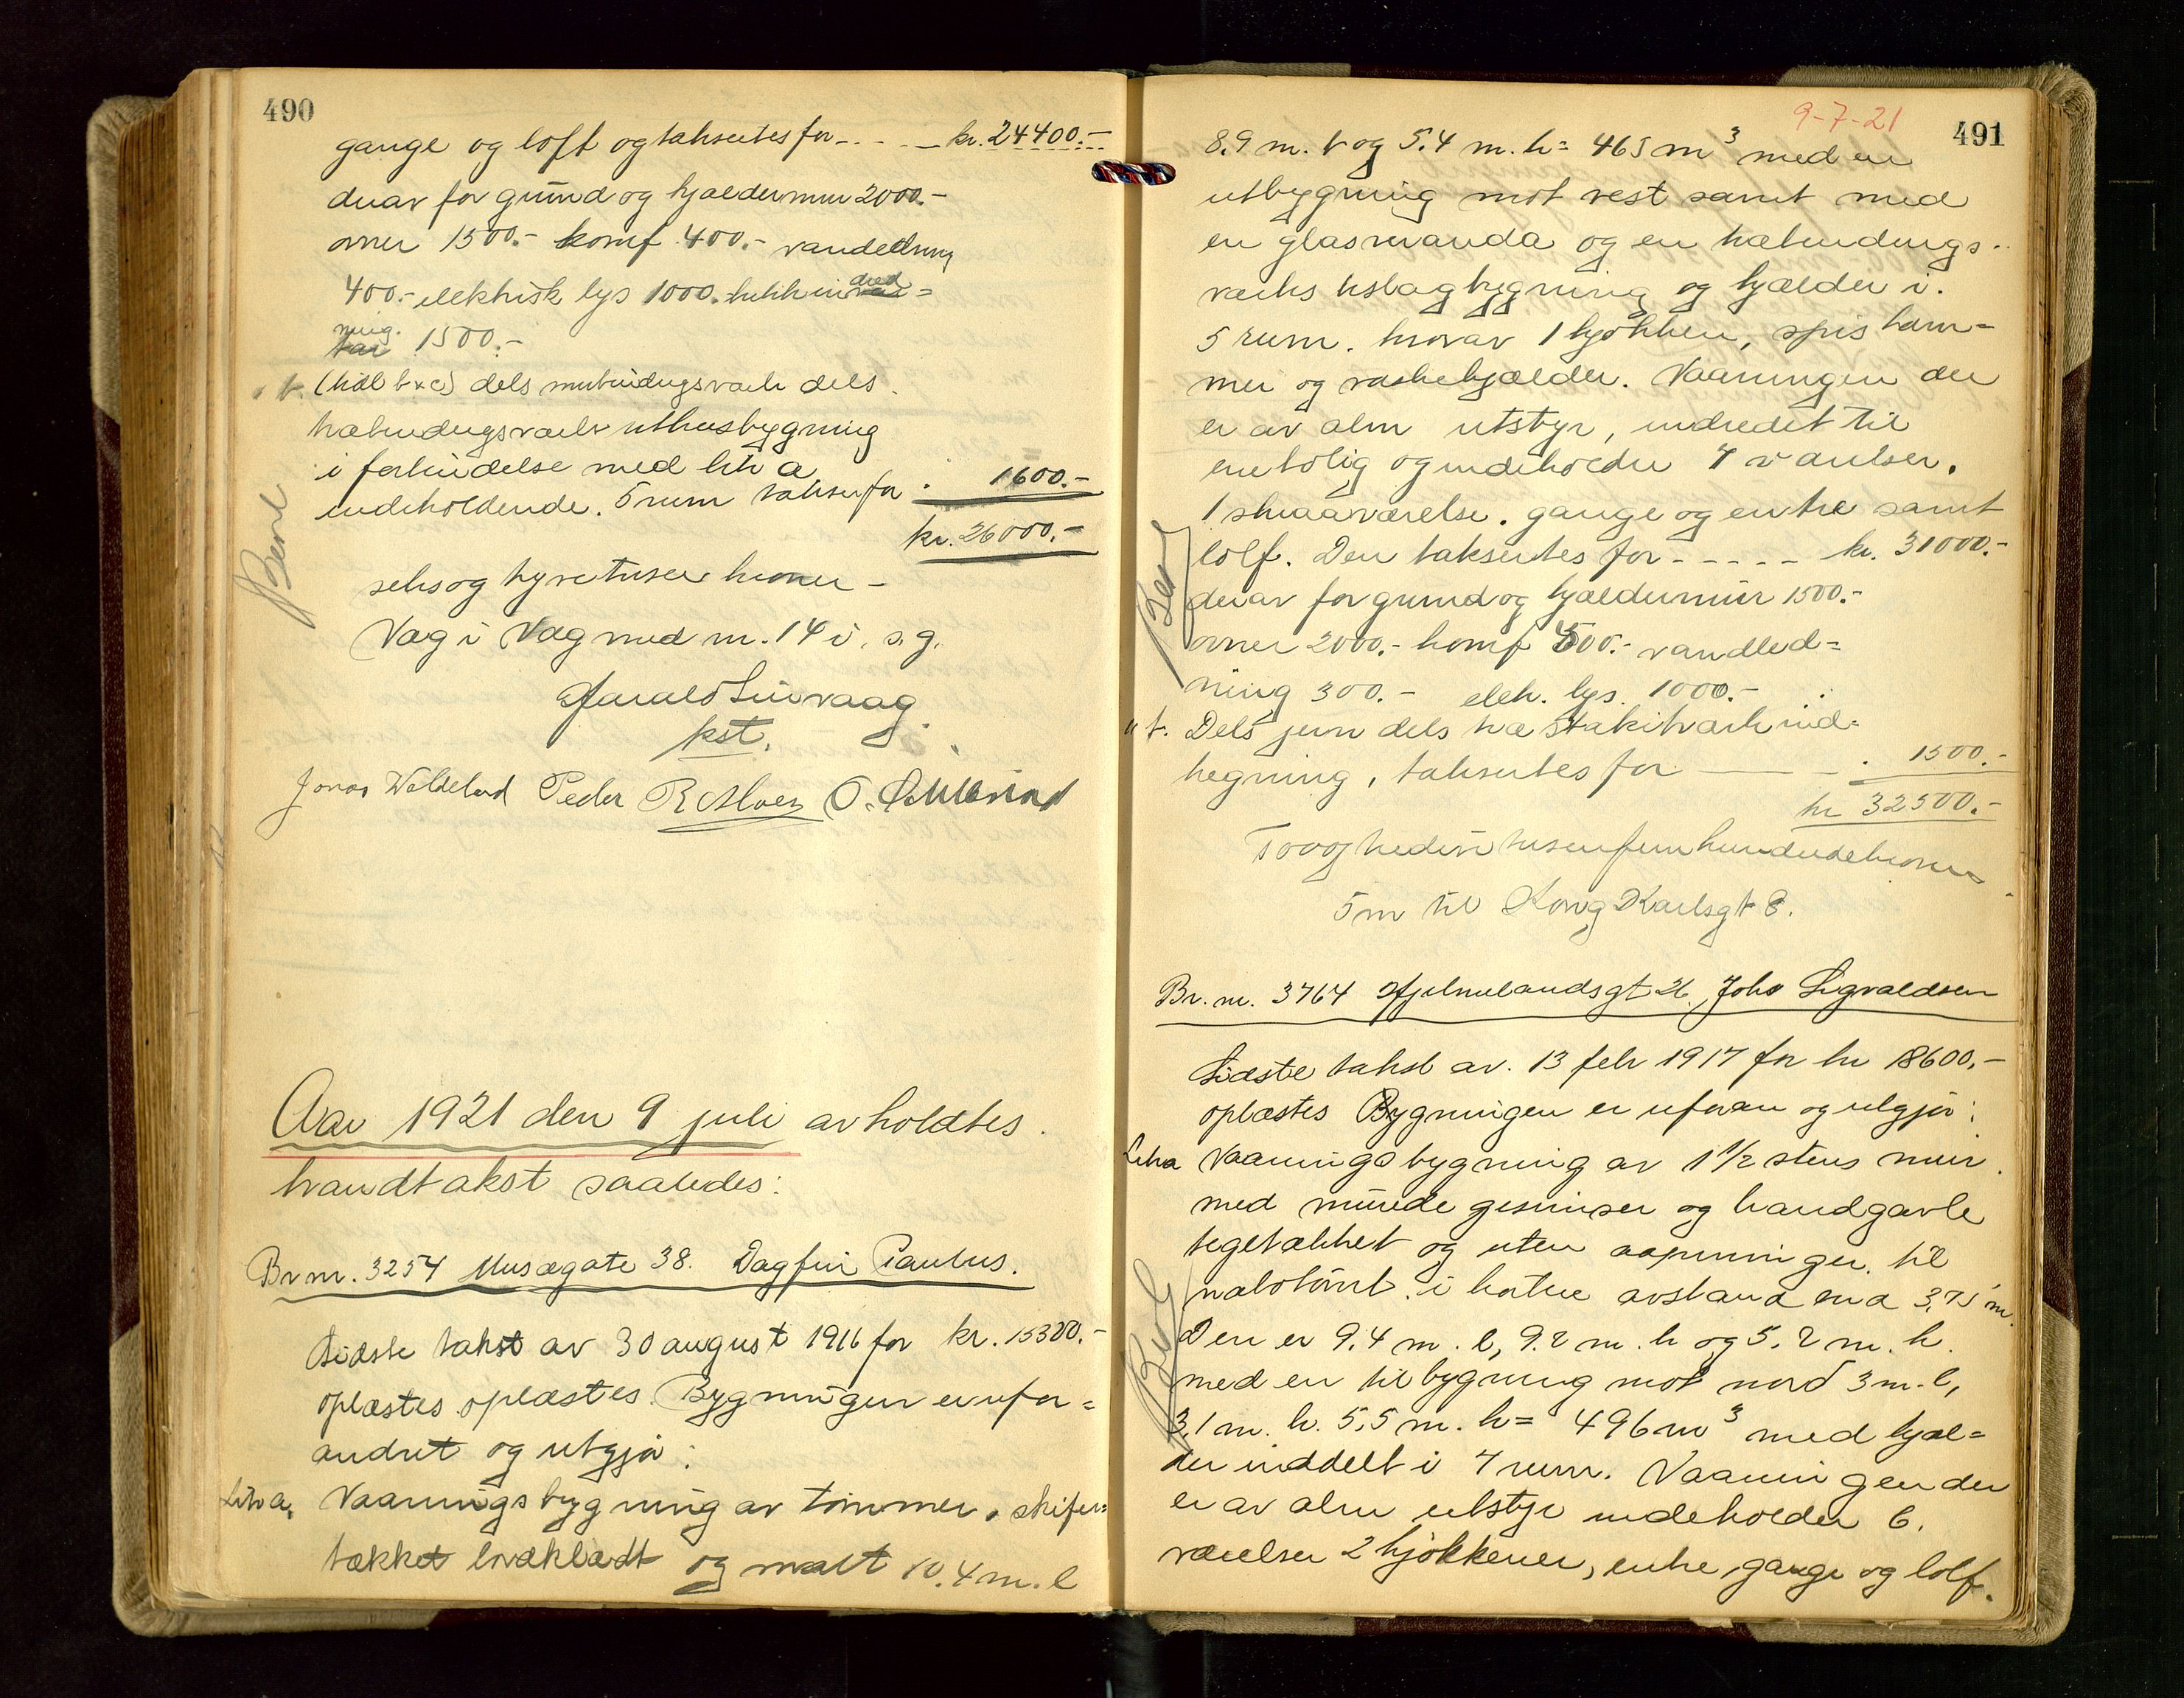 490
gange og loft og takseres for - . - . - kr. 24400.-
derav for grund og kjældermur 2000.-
ovner 1500.- komf 400.- vandledning
400.- elektrisk lys 1000.-
ning. 1500.-
t. (hidl b+c) dels murbindingsverk dels
træbindingsverk uthusbygning
i forbindelse med litr a
indeholdende. 5 rum takser for . 1600.-
kr. 26000.-
seks og tyve tusen kroner -
Væg i Væg med nr. 14 i. s. g.
Harald Linvaag
kst.
Jonas Peder
Aar 1921 den 9 juli avholdtes
brandtakst saaledes:
Br nr. 3254 Musægate 38. Dagfin Paulus.
Sidste takst av 30 august 1916 for kr. 15300.-
oplæstes oplæstes. Bygningen er ufor=
andret og utgjør:
Litr a. Vaaningsbygning av tømmer, skifer=
tækket bordklædt og malt 10.4 m. l
9-7-21
491
8.9 m. b og 5.4 m. h = 465 m3 med en
utbygning mot vest samt med
en glasveranda og en træbindings-
verks tilbygning og kjælder i.
5 rum. hvorav 1 kjøkken, spiskam=
mer og vaskekjælder. Vaaningen der
er av alm utstyr, indredet til
enebolig og indeholder 4 værelser.
1 smaaværelse. gange og entre samt
loft. Den takseres for - - - - - kr. 31000.-
derav for grund og kjældermur 1500.-
ovner 2000.- komf 500.- vandled=
ning 300.- elek. lys. 1000.-
" t. Dels jern dels træ stakitverk ind=
hegning, takseres for - . 1500.-
kr 32500.-
To og tredive tusen fem hundrede kroner
5 m til Kong Karlsgt 8.
Br. nr. 3764 Hjelmelandsgt 26. Johs Sigvaldsen
Sidste takst av. 13 febr 1917 for kr 18600.-
oplæstes Bygningen er uforan og utgjør:
Litra Vaaningsbygning av 1 1/2 stens mur
med murede gesimser og brandgavle
tegltækket og uten aapninger til
nabotomt i kortere avstand end 3,75 m.
Den er 9.4 m. l, 9.2 m. b og 5.2 m. h.
med en tilbygning mot nord 3 m. l,
3,1 m. b. 5,5 m. h = 496 m3 med kjæl=
der inddelt i 4 rum. Vaaningen der
er av alm utstyr indeholder 6.
værelser 2 kjøkkener, entre, gange og loft.